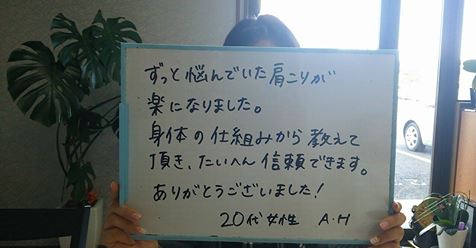 ずっと悩んでいた肩こりが
楽になりました。
身体の仕組みから教えて
頂き、たいへん信頼できます。
ありがとうございました!
20代女性 A・H